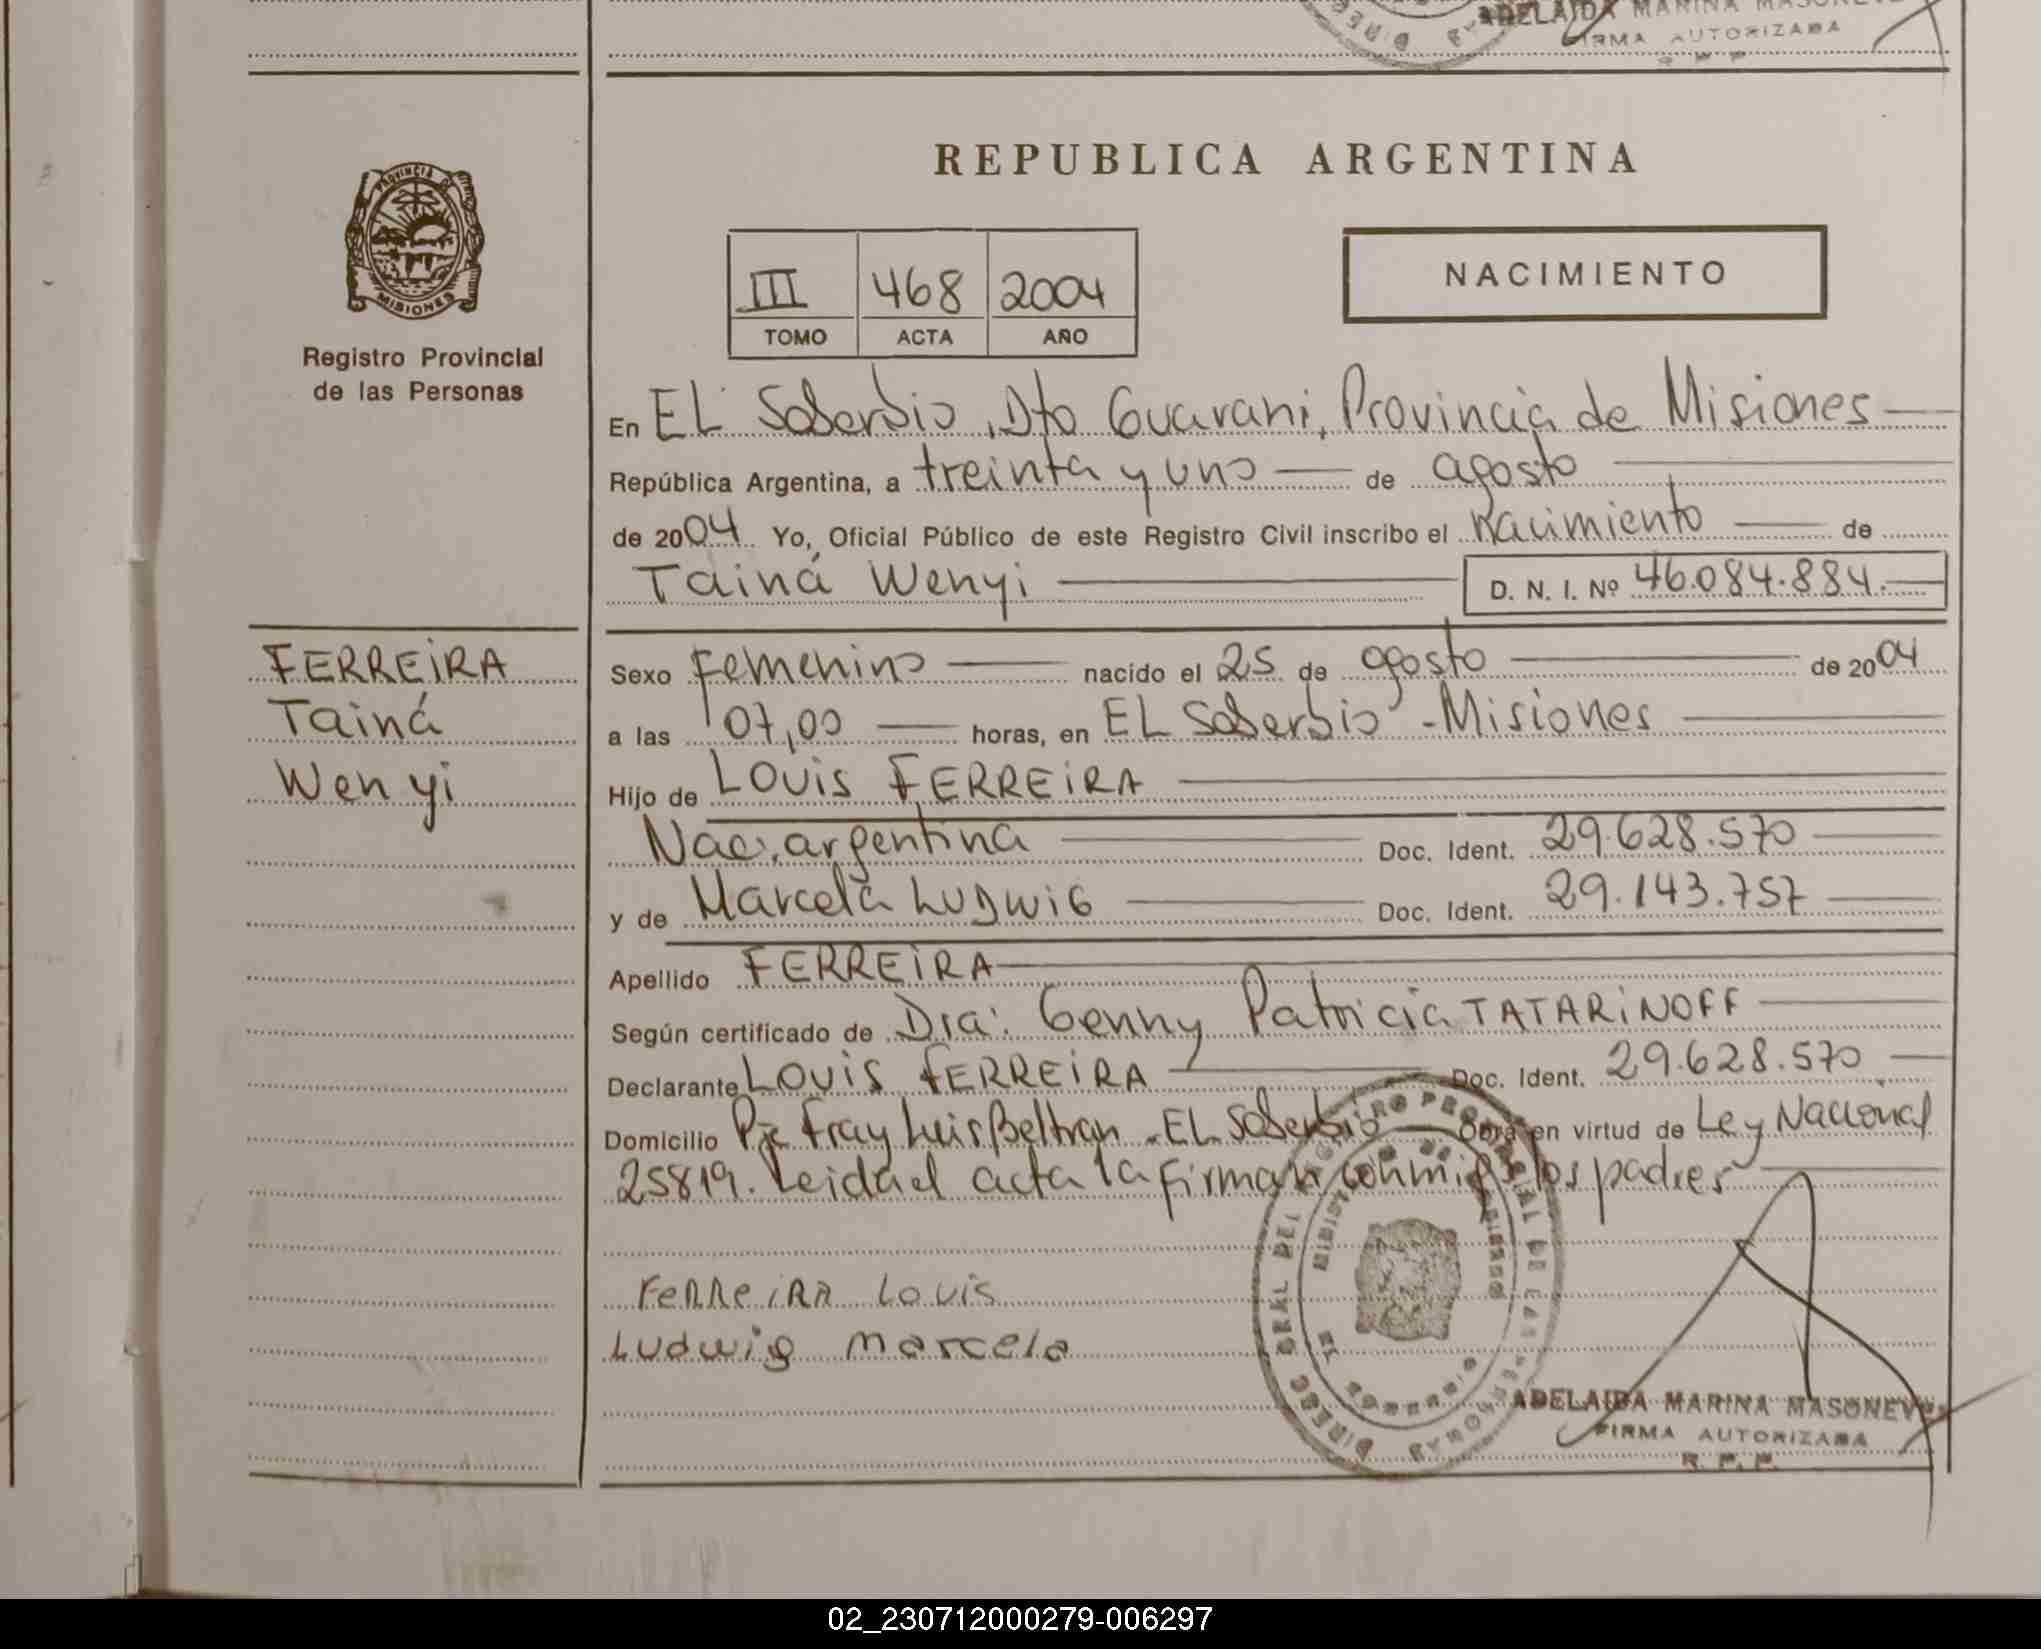 ADELAIDA MARINA MASONEVE
FIRMA AUTORIZADA
REPUBLICA ARGENTINA
PROVINCIA DE
MISIONES
Registro Provincial
de las Personas
III 468 2004
TOMO ACTA AÑO
NACIMIENTO
En EL Soberbio, Dto Guarani, Provincia de Misiones
República Argentina, a treinta y uno de agosto
de 2004 Yo, Oficial Público de este Registro Civil inscribo el Nacimiento de
Tainá Wenyi D. N. I. Nº 46.084.884.
FERREIRA
Tainá
Wenyi
Sexo Femenino nacido el 25 de agosto de 2004
a las 07,00 horas, en EL Soberbio - Misiones
Hijo de LOUIS FERREIRA
Nac. argentina Doc. Ident. 29.628.570
y de Marcela LUDWIG Doc. Ident. 29.143.757
Apellido FERREIRA
Según certificado de Dra. Genny Patricia TATARINOFF
Declarante LOUIS FERREIRA Doc. Ident. 29.628.570
Domicilio Pje Fray Luis Beltran - EL Soberbio Obra en virtud de Ley Nacional
25819. Leida el acta la firman conmigo los padres
Ferreira Louis
Ludwig Marcela
ADELAIDA MARINA MASONEVE
FIRMA AUTORIZADA
R. P. P.
02_230712000279-006297